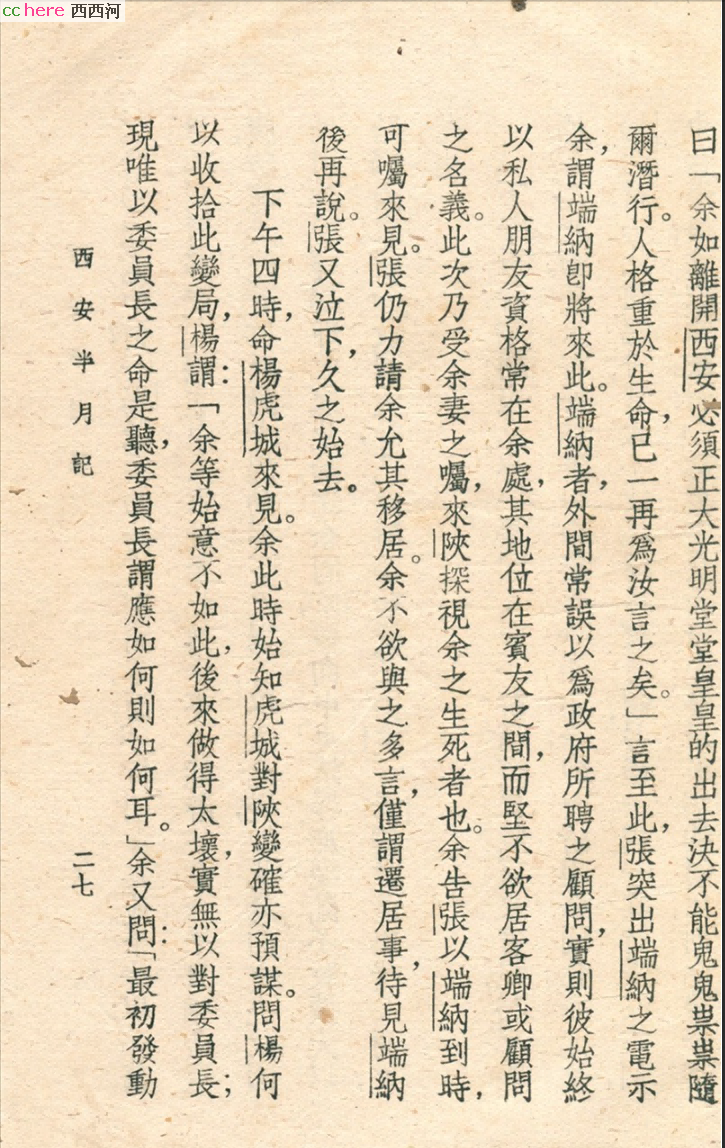 cchere 西西河
曰「余如離開西安必須正大光明堂堂皇皇的出去決不能鬼鬼祟祟隨
爾潛行。人格重於生命,己一再爲汝言之矣。」言至此,張突出端納之電示
余,謂端納卽將來此。端納者,外間常誤以爲政府所聘之顧問,實則彼始終
以私人朋友資格常在余處,其地位在賓友之間,而堅不欲居客卿或顧問
之名義。此次乃受余妻之囑,來陝探視余之生死者也。余告張以端納到時,
可囑來見。張仍力請余允其移居。余不欲與之多言,僅謂遷居事,待見端納
後再說。張又泣下,久之始去。
下午四時,命楊虎城來見。余此時始知虎城對陝變確亦預謀。問楊何
以收拾此變局,楊謂:「余等始意不如此,後來做得太壞,實無以對委員長;
現唯以委員長之命是聽,委員長謂應如何則如何耳。」余又問:「最初發動
西安半月記
二七